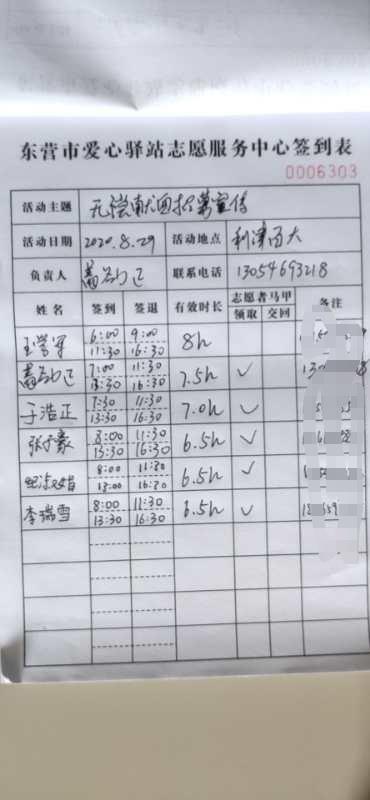 东营市爱心驿站志愿服务中心签到表
0006303
活动主题 无偿献血招募宣传
活动日期 2020.8.29 活动地点 利津百大
负责人 联系电话 13054693218
姓名 签到 签退 有效时长 志愿者马甲 备注
领取 交回
王学军 6:00 9:00 8h
11:30 16:30
7:00 11:30 7.5h ✓
13:30 16:30
于浩正 7:30 11:30 7.0h ✓
13:30 16:30
张子豪 8:00 11:30 6.5h ✓
13:30 16:30
8:00 11:30 6.5h ✓
13:00 16:30
李瑞雪 8:00 11:30 6.5h ✓
13:30 16:30